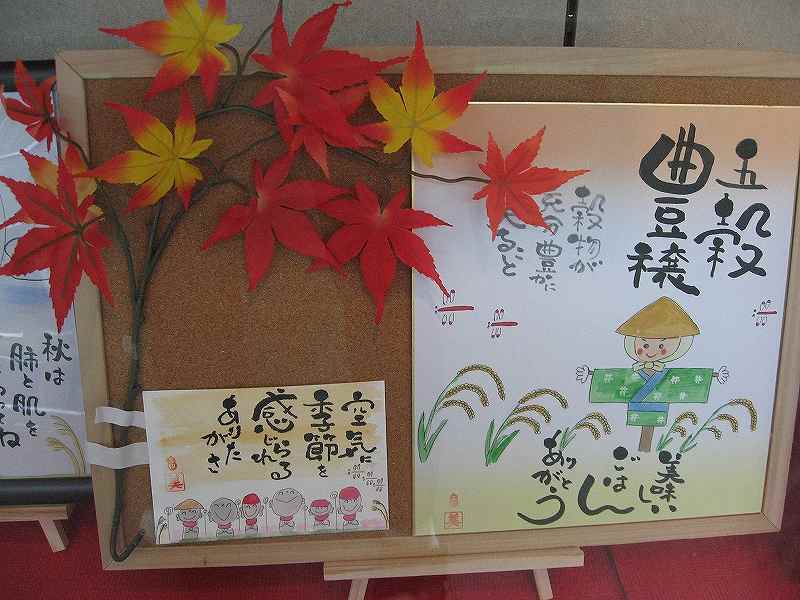 五穀
豊穣
穀物が
豊かに
ること
美味しい
ごはん
ありがとう
空気に
季節を
感じられる
ありがたさ
秋は
肺と肌を